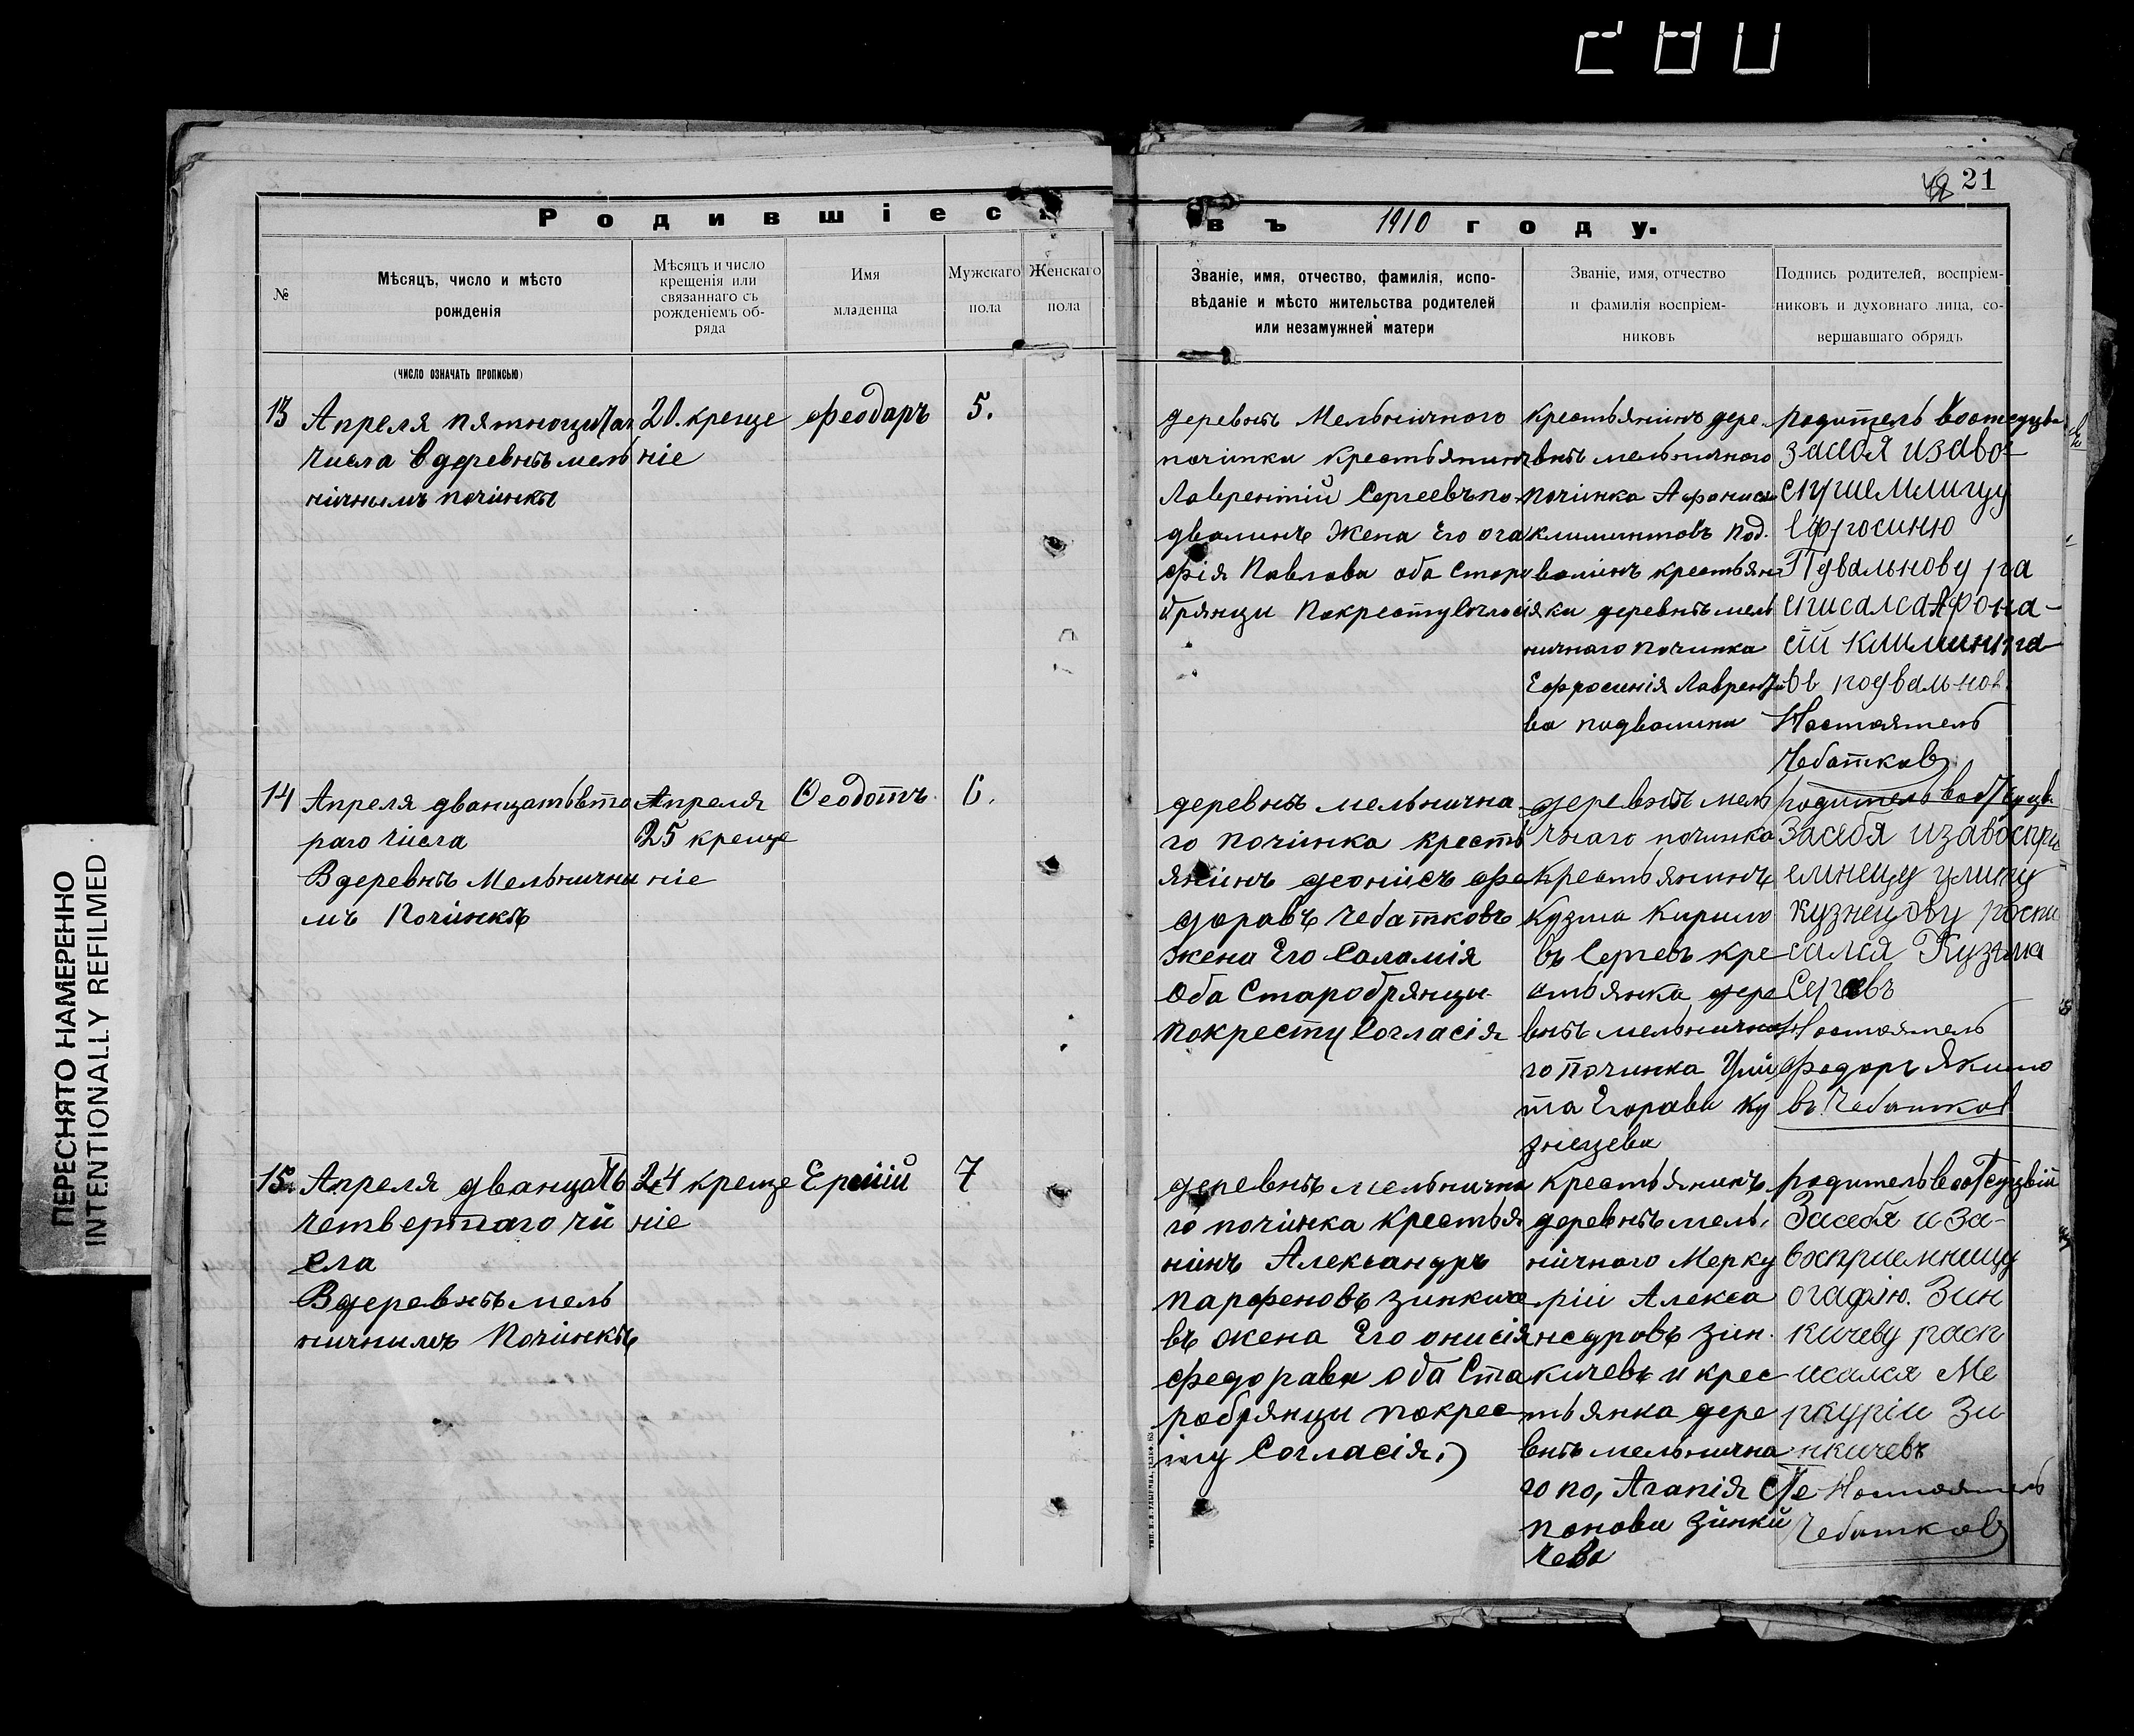 ПЕРЕСНЯТО НАМЕРЕННО
INTENTIONALLY REFILMED
21
Родившіеся
въ 1910 году.
№
Мѣсяцъ, число и мѣсто
рожденія
(число означать прописью)
Мѣсяцъ и число
крещенія или
связаннаго съ
рожденіемъ об-
ряда
Имя
младенца
Мужскаго
пола
Женскаго
пола
Званіе, имя, отчество, фамилія, испо-
вѣданіе и мѣсто жительства родителей
или незамужней матери
Званіе, имя, отчество
и фамилія воспріем-
никовъ
Подпись родителей, воспріем-
никовъ и духовнаго лица, со-
вершавшаго обрядъ
13
Апреля
числа в деревнѣ мель
ничнымъ починкѣ
20. креще
ніе
Феодаръ
5.
деревнѣ Мельничного
починки крестьянинъ
Лаврентій Сергеевъ по-
двалинъ Жена Его ога
фія Павлова оба старо
брянцы Покресту Согласія
крестьянинъ дере-
внѣ мельничного
починка Афониси
климинтовъ под.
валинъ крестьян
ка деревнѣ мель
ничнаго починка
Ефросинія Лаврентів
ва подвалина
родитель
засебя изаво-
спуиемлицу
Ефросиню
Подвальнову ра
списался Афона-
сій климинта
въ подвальнов
Настоятель
Чебатковъ
14
Апреля дванцатьвто
раго числа
Вдеревнѣ Мельнични
мъ Починкѣ
Апреля
25 креще
ніе
Ѳеодотъ
6.
деревнѣ мельнична
го починка кресть
янинъ деонисъ фе
доравъ Чебатковъ
жена Его Саламія
Оба Старобрянцы
покресту Согласія
деревнѣ мель
чнаго починка
крестьянинъ
Кузма Кирило
въ Сергевъ кре
стьянка дере
внѣ мельнично
го Починка Ули
та Егорава Ку
знецева
родитель
Засебя изавоспри
емницу улиту
кузнецову роспи
сался Кузьма
Сергевъ
Настоятель
Федоръ Якимо
въ Чебатков
15.
Апреля дванцать
четвертаго чи
сла
Вдеревнѣ мель
ничнимъ Починкѣ
24 креще
ніе
7
деревнѣ мельнична
го починка крестья
нинъ Александръ
парфеновъ зинкиче
въ жена Его онисія
федорава оба Ста
робрянцы покрес
ту Согласія.
Крестьянинъ
деревнѣ мель.
ничного Мерку
ріи Алекса
ндровъ зин.
кичевъ и крес
тьянка дере
внѣ мельнична
го по, Агапія Сте
панова Зинки
чева
родитель
Засебя и за-
восприемницу
огафію. Зин
кичеву расп
исался Ме
ркуріи Зи
нкичевъ
Настоятель
Чебатковъ